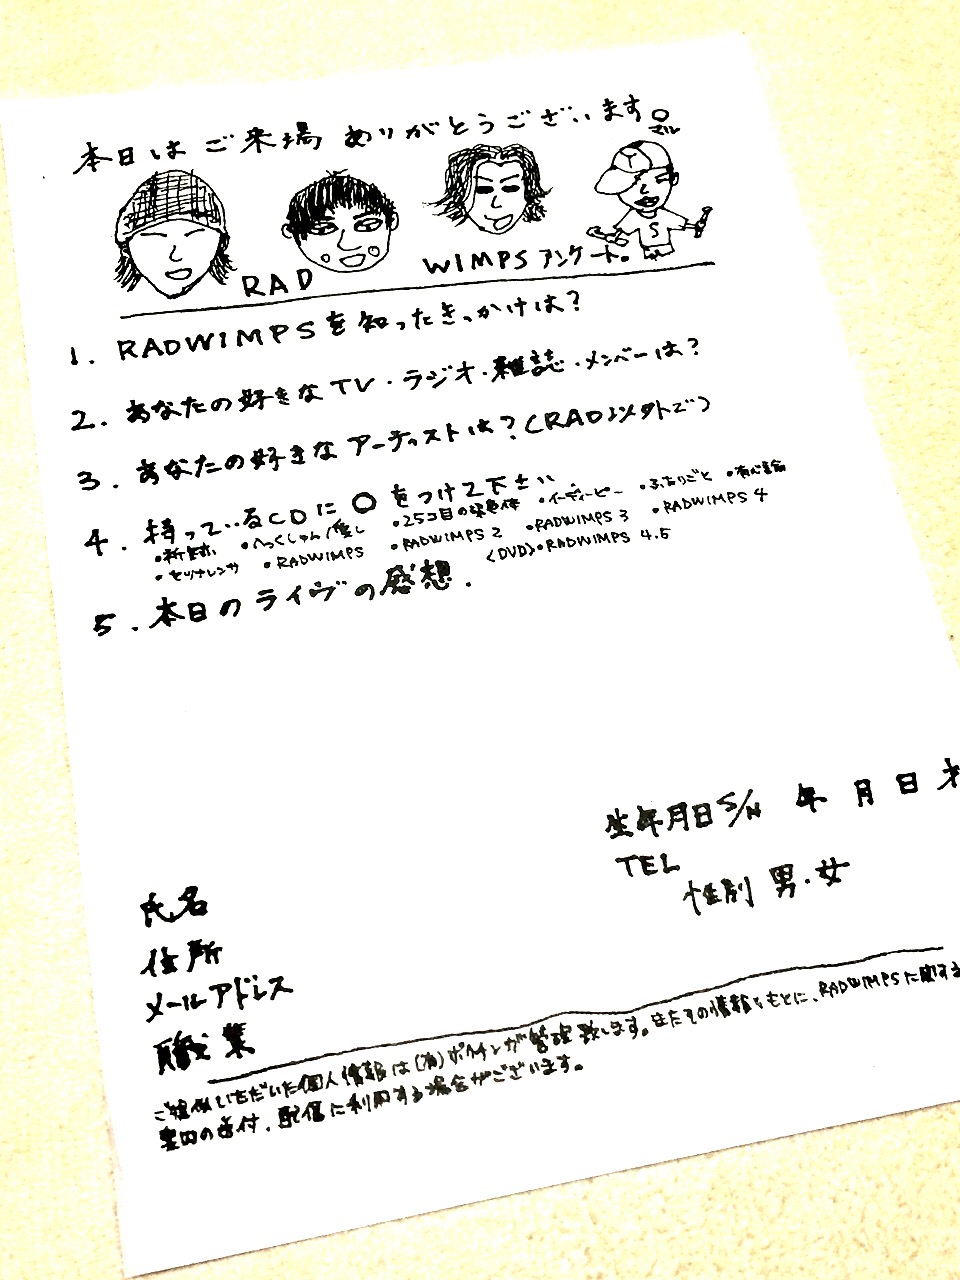 本日はご来場ありがとうございます。
マル
RADWIMPSアンケート。
1. RADWIMPSを知ったきっかけは?
2. あなたの好きなTV・ラジオ・雑誌・メンバーは?
3. あなたの好きなアーティストは?(RAD以外で)
4. 持っているCDに○をつけて下さい
・祈跡 ・へっくしゅん/愛し ・25コ目の染色体 ・イーディーピー ・ふたりごと ・有心論
・セツナレンサ ・RADWIMPS ・RADWIMPS 2 ・RADWIMPS 3 ・RADWIMPS 4
<DVD>・RADWIMPS 4.5
5. 本日のライヴの感想.
生年月日 S/H 年 月 日 才
TEL
性別 男・女
氏名
住所
メールアドレス
職業
ご提供いただいた個人情報は(有)ボクチンが管理致します。またその情報をもとに、RADWIMPSに関する
案内の送付、配信に利用する場合がございます。